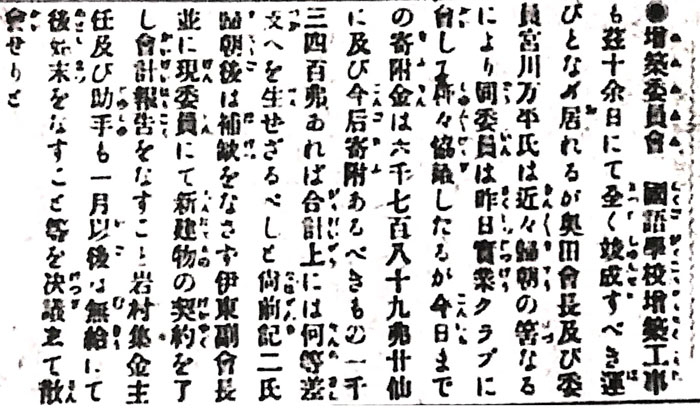 ●增築委員會　國語學校增築工事
も玆十余日にて全く竣成すべき運
びとなメ居れるが奥田會長及び委
員宮川万平氏は近々歸朝の筈なる
により同委員は昨日實業クラブに
會して種々協議したるが今日まで
の寄附金は六千七百八十九弗廿仙
に及び今后寄附あるべきもの一千
三四百弗あれば合計上には何等差
支へを生せざるべしと尚前記二氏
歸朝後は補缺をなさす伊東副會長
並に現委員にて新建物の契約を了
し會計報告をなすこと岩村集金主
任及び助手も一月以後は無給にて
後始末をなすこと等を決議して散
會せりと